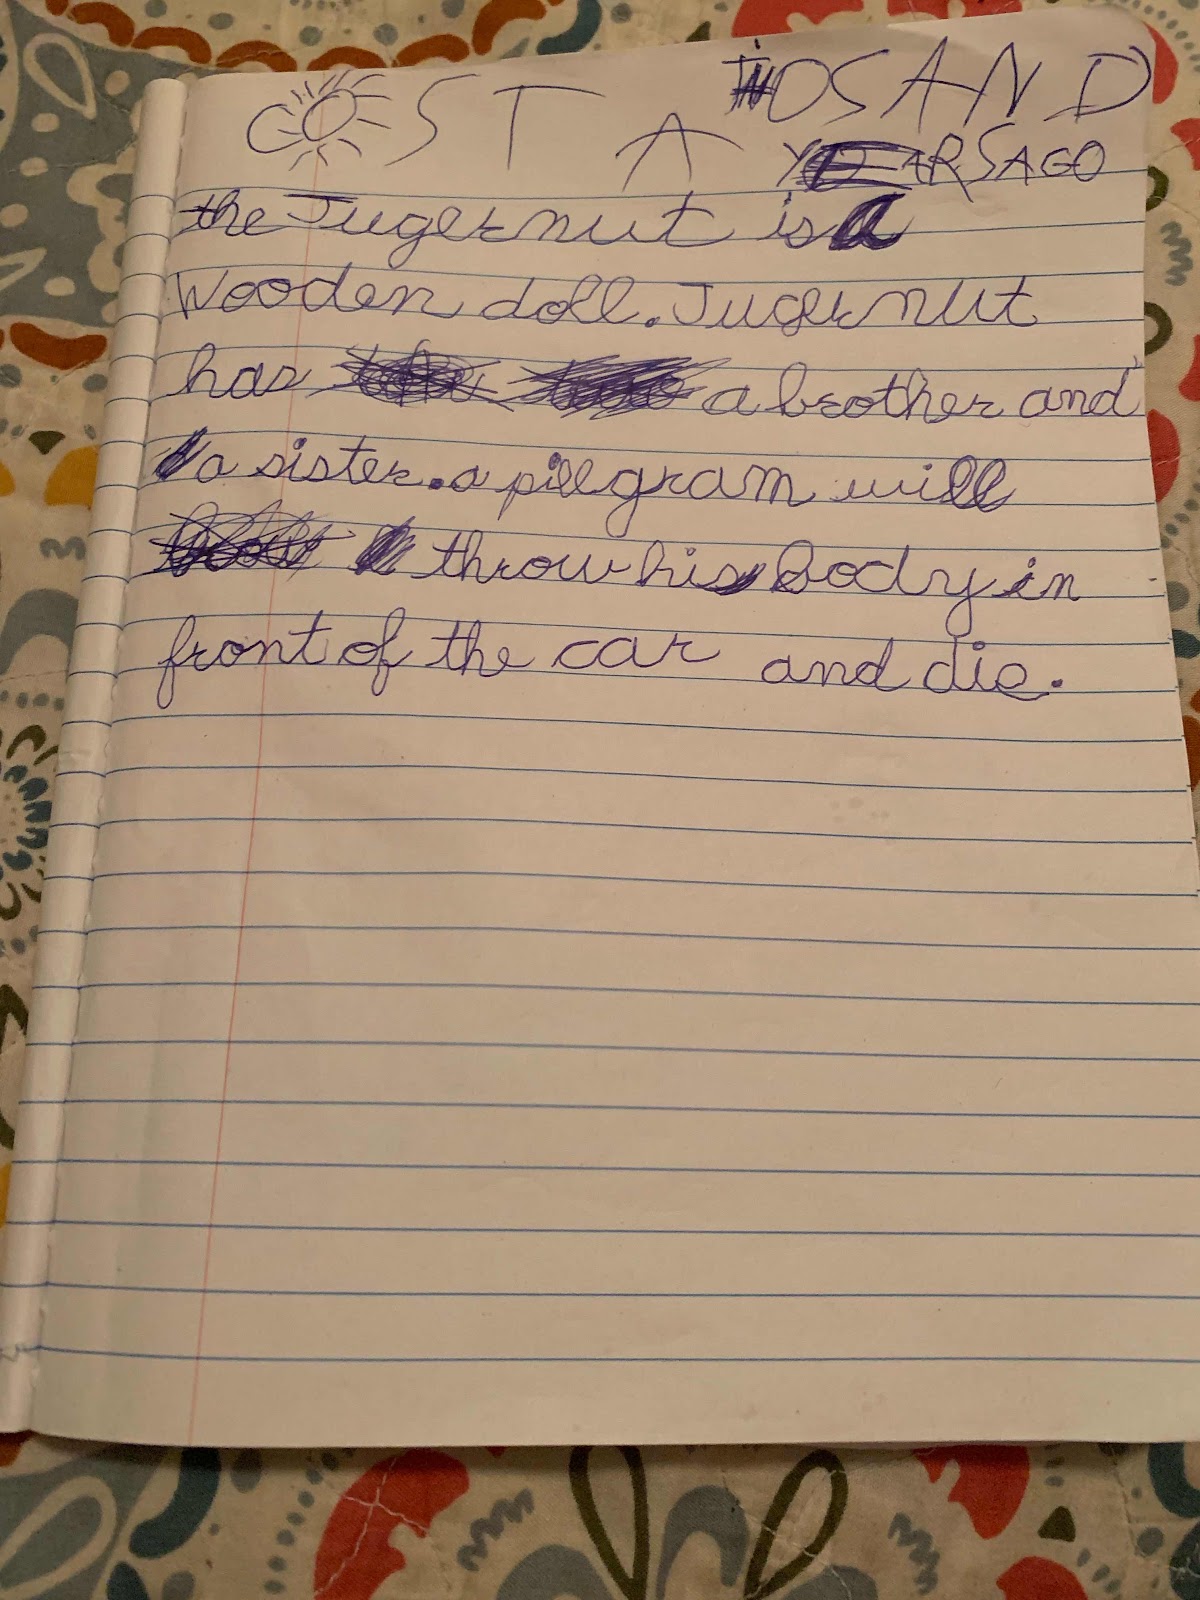 COST A THOSAND
YEARS AGO
the Jugernut is a
Wooden doll. Jugernut
has a brother and
a sister. a pillgram will
throw his body in
front of the car and die.